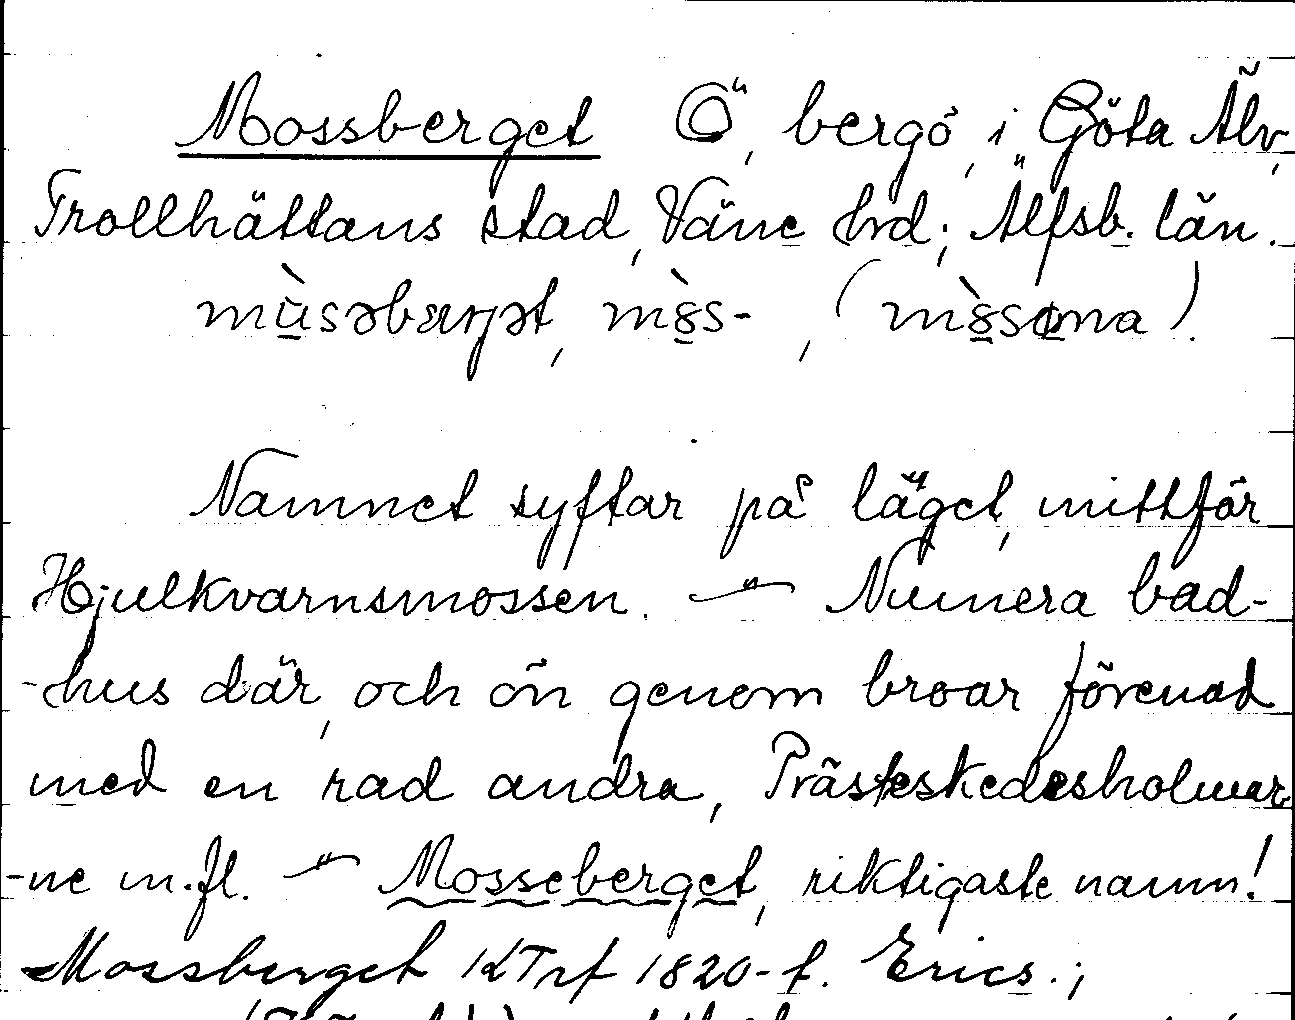 Mossberget Ö, bergö, i Göta Älv,
Trollhättans stad, Väne hd; Älfsb. län.
Namnet syftar på läget, mittför
Hjulkvarnsmossen. — Numera bad-
-hus där, och ön genom broar förenad
med en rad andra, Prästeskedesholmar-
-ne m.fl. — Mosseberget, riktigaste namn!
Mossberget KTrf 1820-t. Erics.;